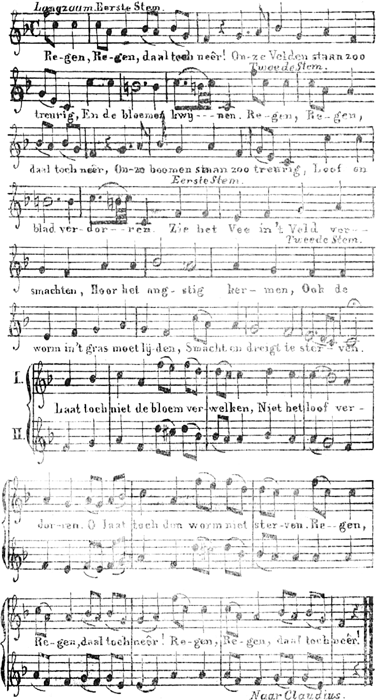 Langzaam. Eerste Stem.
Re-gen, Re-gen, daal toch neêr! On-ze Velden staan zoo
Tweede Stem.
treurig, En de bloemen kwij---nen. Re-gen, Re-gen,
daal toch neêr, On-ze boomen staan zoo treurig, Loof en
Eerste Stem.
blad ver-dor--ren. Zie het Vee in 't Veld ver--
Tweede Stem.
smachten, Hoor het ang-stig ker-men, Ook de
worm in 't gras moet lij-den, Smacht en dreigt te ster-ven.
I.
Laat toch niet de bloem ver-welken, Niet het loof ver-
II.
dor-ren. O laat toch den worm niet ster-ven. Re-gen,
Re-gen, daal toch neêr! Re-gen, Re-gen, daal toch neêr!
Naar Claudius.